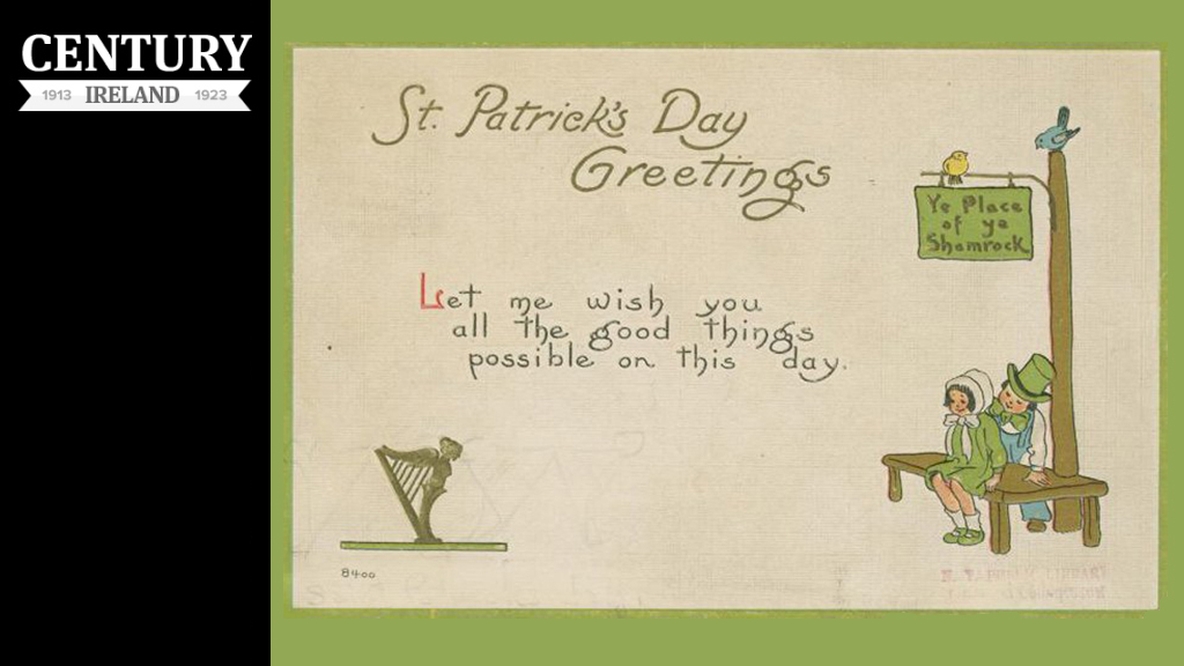 CENTURY
1913 IRELAND 1923
St. Patrick's Day
Greetings
Ye Place
of ye
Shamrock
Let me wish you
all the good things
possible on this day.
8400